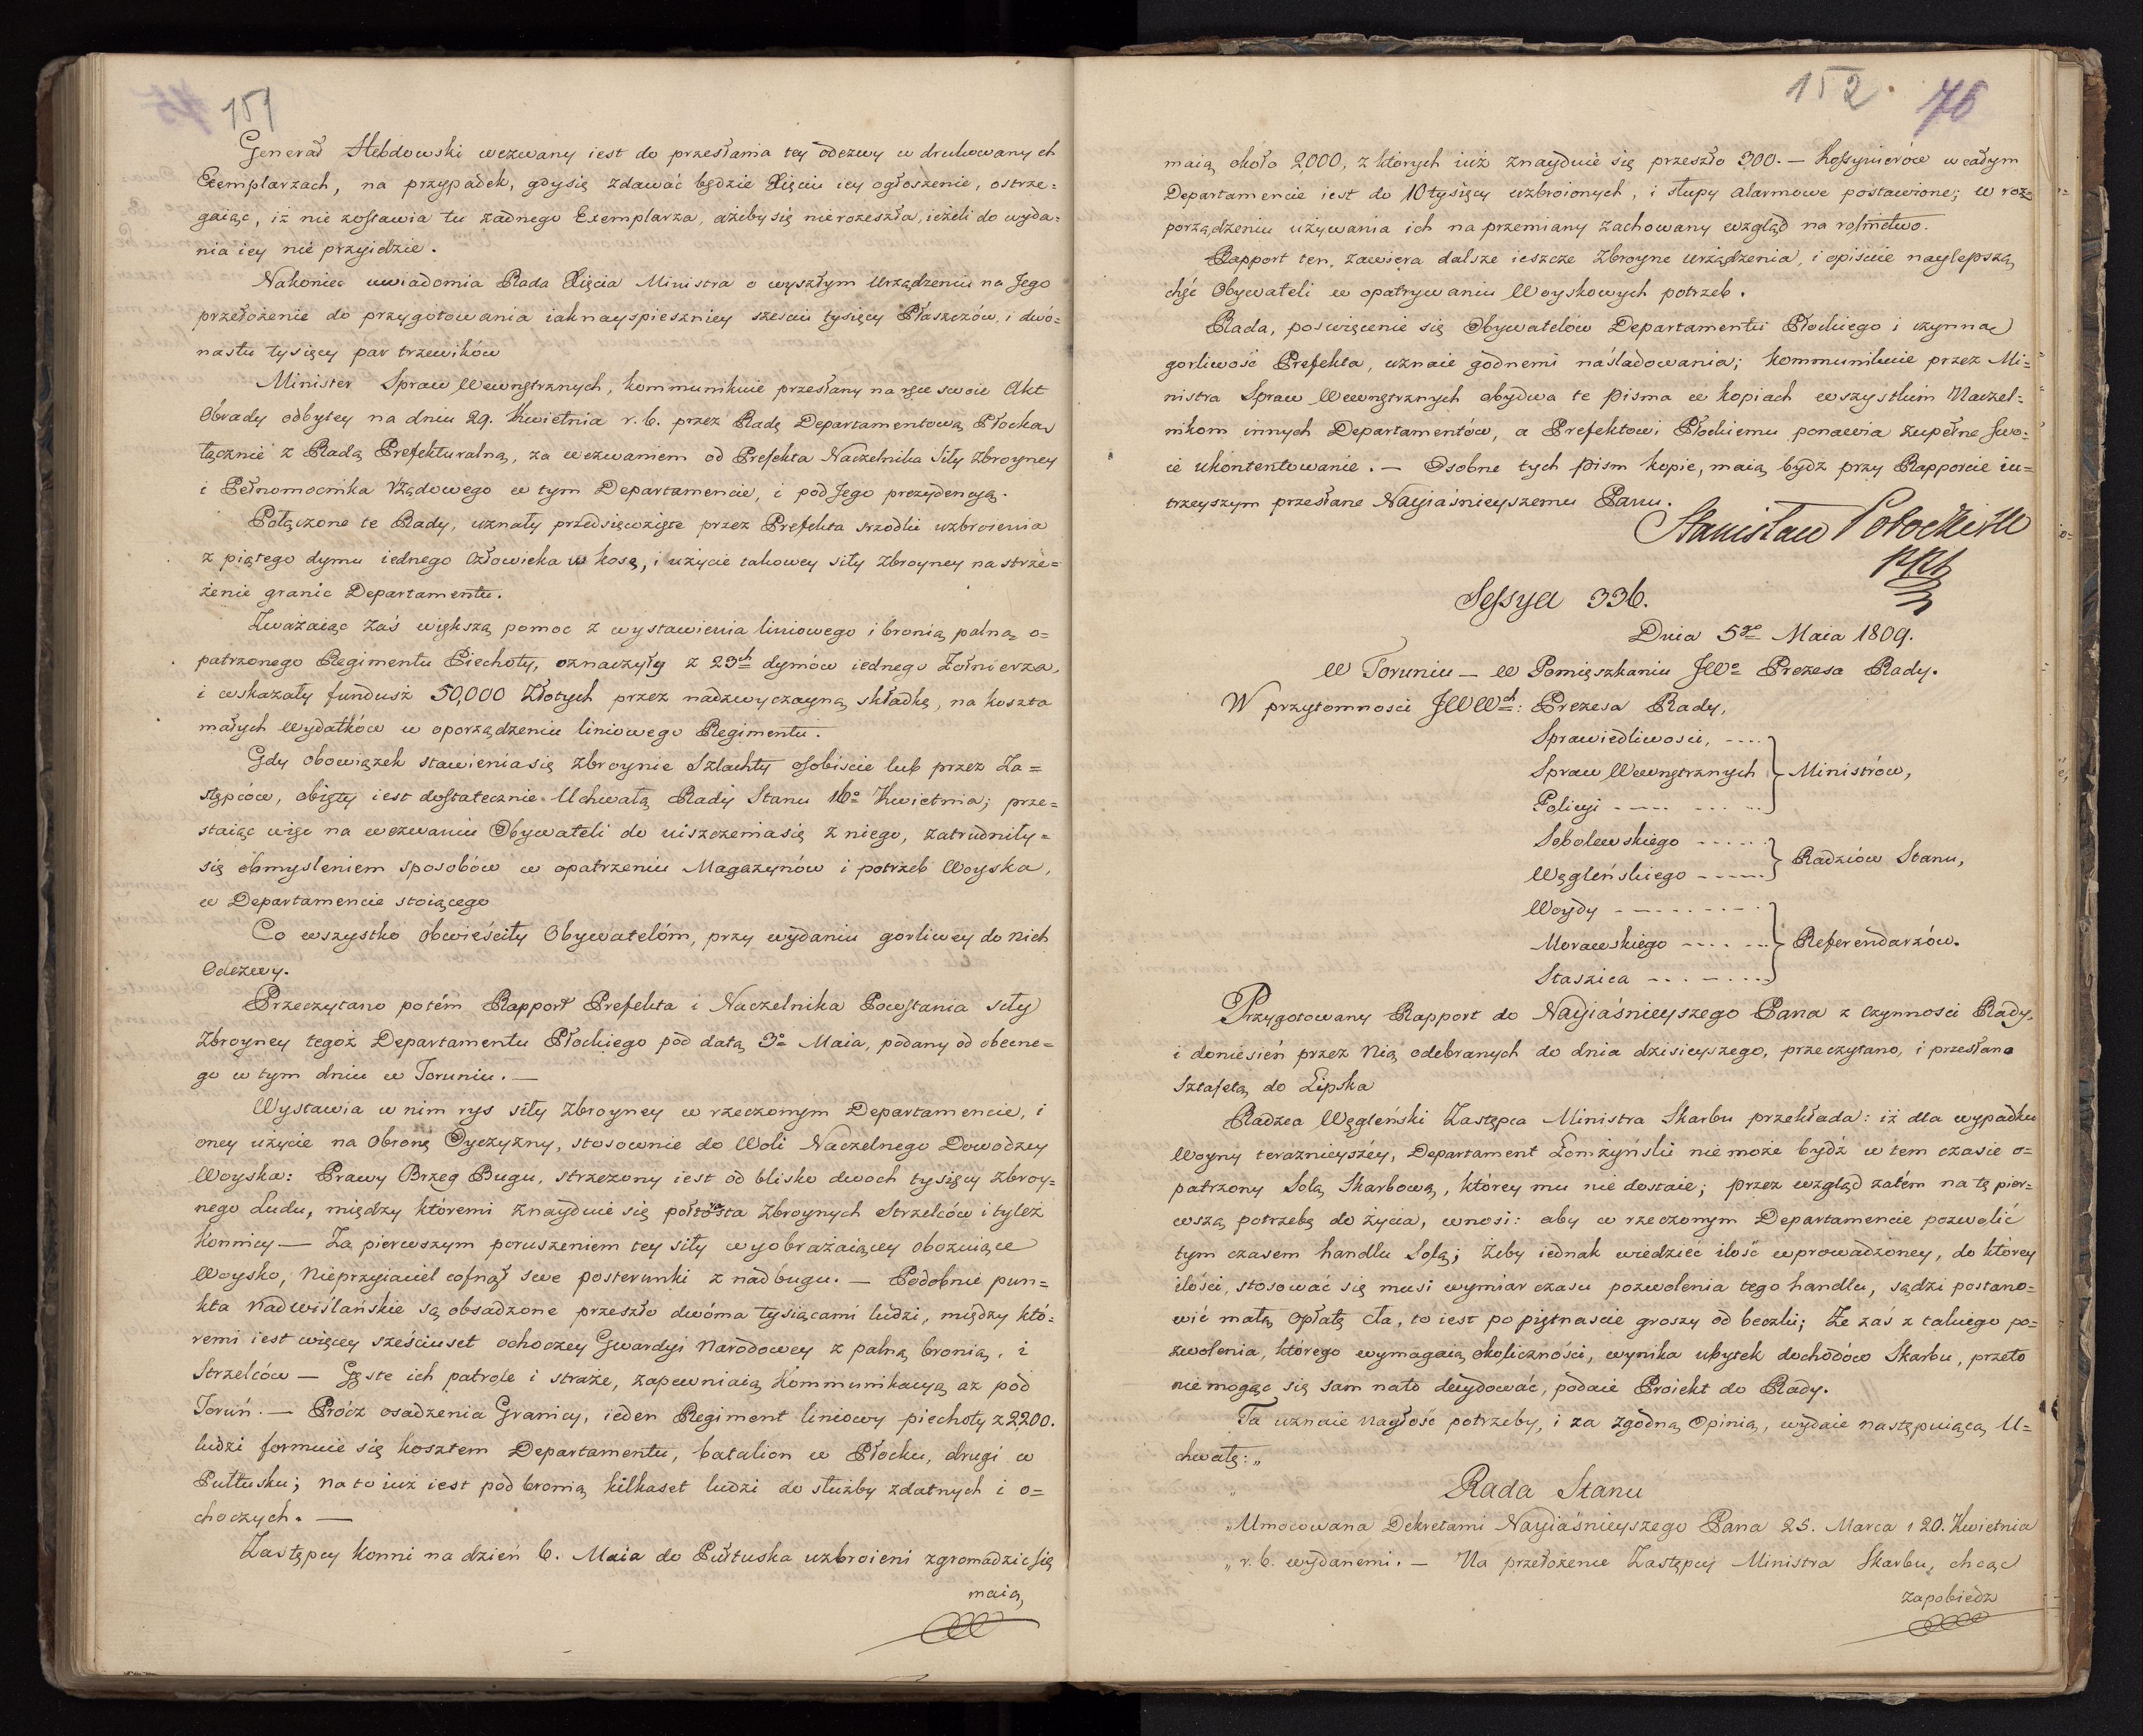 151
Generał Hebdowski wezwany iest do przesłania tey odezwy w drukowanych
Exemplarzach, na przypadek, gdysię zdawać będzie Xięciu iey ogłoszenie, ostrze=
gaiąc, iż nie zostawia tu żadnego Exemplarza, ażeby się nierozeszła, ieżeli do wyda=
nia iey nie przyidzie.
Nakoniec uwiadomia Rada Xięcia Ministra o wyszłym Urządzeniu na Jego
przełożenie do przygotowania iaknayspieszniey sześciu tysięcy Płaszczów, i dwó=
nastu tysięcy par trzewików
Minister Spraw Wewnętrznych, kommunikuie przesłany na ręce swoie Akt
Obrady odbytey na dniu 29. Kwietnia r. b. przez Radę Departamentową Płocką
łącznie z Radą Prefekturalną, za wezwaniem od Prefekta Naczelnika Siły Zbroyney
i Pełnomocnika Rządowego w tym Departamencie, i pod Jego prezydencyą.
Połączone te Rady, uznały przedsięwzięte przez Prefekta srzodki uzbroienia
z piątego dymu iednego człowieka w kosę, i użycie takowey siły zbroyney na strze=
żenie granic Departamentu.
Zważaiąc zaś większą pomoc z wystawienia liniowego i bronią palną o=
patrzonego Regimentu Piechoty, oznaczyły z 23ch dymów iednego Żołnierza,
i wskazały fundusz 50,000 Złotych przez nadzwyczayną składkę, na koszta
małych wydatków w oporządzeniu liniowego Regimentu.
Gdy obowiązek stawieniasię zbroynie Szlachty osobiście lub przez Za=
stępców, obięty iest dostatecznie Uchwałą Rady Stanu 16o Kwietnia; prze=
staiąc więc na wezwaniu Obywateli do uiszczeniasię z niego, zatrudniły=
się obmyśleniem sposobów w opatrzeniu Magazynów i potrzeb Woyska,
w Departamencie stoiącego
Co wszystko obwieściły Obywatelóm, przy wydaniu gorliwey do nich
Odezwy.
Przeczytano potém Rapport Prefekta i Naczelnika Powstania siły
Zbroyney tegoż Departamentu Płockiego pod datą 3o Maia, podany od obecne=
go w tym dniu w Toruniu. —
Wystawia w nim rys siły zbroyney w rzeczonym Departamencie, i
oney użycie na obronę Oyczyzny, stosownie do Woli Naczelnego Dowodzcy
Woyska: Prawy Brzeg Bugu, strzeżony iest od blisko dwoch tysięcy zbroy=
nego Ludu, między któremi znayduie się półtorasta zbroynych Strzelców i tyleż
Konnicy — Za pierwszym poruszeniem tey siły wyobrażaiącey obozuiące
Woysko, Nieprzyiaciel cofnął swe posterunki z nadbugu. — Podobnie pun=
kta nadwiślańskie są obsadzone przeszło dwóma tysiącami ludzi, między któ=
remi iest więcey sześciuset ochoczey Gwardyi Narodowey z palną bronią, i
Strzelców — Gęste ich patrole i straże, zapewniaią kommunikacyą aż pod
Toruń. — Prócz osadzenia Granicy, ieden Regiment liniowy piechoty z 2200.
ludzi formuie się kosztem Departamentu, batalion w Płocku, drugi w
Pułtusku; na to iuż iest pod bronią kilkaset ludzi do służby zdatnych i o=
choczych. —
Zastępcy konni na dzień 6. Maia do Pułtuska uzbroieni zgromadzić się
maią,
152.
76
maią około 2000, z których iuż znayduie się przeszło 300. — Kossynierów w całym
Departamencie iest do 10 tysięcy uzbroionych, i słupy alarmowe postawione; w roz=
porządzeniu używania ich na przemiany zachowany wzgląd na rolnictwo.
Rapport ten, zawiera dalsze ieszcze zbroyne urządzenia, i opisuie naylepszą
chęć Obywateli w opatrywaniu Woyskowych potrzeb.
Rada, poświęcenie się Obywatelów Departamentu Płockiego i czynną
gorliwość Prefekta, uznaie godnemi naśladowania; kommunikuie przez Mi=
nistra Spraw Wewnętrznych obydwa te pisma w kopiach wszystkim Naczel=
nikom innych Departamentów, a Prefektowi Płockiemu ponawia zupełne swo=
ie ukontentowanie. — Osobne tych pism kopie, maią bydz przy Rapporcie iu=
trzeyszym przesłane Nayiaśnieyszemu Panu.
Stanisław Potocki
Sessya 336.
Dnia 5go Maia 1809.
W Toruniu — w Pomięszkaniu JWo Prezesa Rady.
W przytomności JWWch: Prezesa Rady,
Sprawiedliwości, ----
Spraw Wewnętrznych } Ministrów,
Policyi ---- --- ---
Sobolewskiego -----
Węgleńskiego ----- } Radzców Stanu,
Woydy ---------
Morawskiego ---- --- } Referendarzów.
Staszica ---------
Przygotowany Rapport do Nayiaśnieyszego Pana z czynności Rady,
i doniesień przez Nią odebranych do dnia dzisieyszego, przeczytano, i przesłano
sztafetą do Lipska
Radzca Węgleński Zastępca Ministra Skarbu przekłada: iż dla wypadku
Woyny teraznieyszéy, Departament Łomżyński nie może bydź w tem czasie o=
patrzony Solą Skarbową, którey mu nie dostaie; przez wzgląd zatém na tę pier=
wszą potrzebę do życia, wnosi: aby w rzeczonym Departamencie pozwolić
tym czasem handlu Solą; żeby iednak wiedzieć ilość wprowadzoney, do którey
ilości, stosować się musi wymiar czasu pozwolenia tego handlu, sądzi postano=
wić małą opłatę cła, to iest po piętnaście groszy od beczki; Że zaś z takiego po=
zwolenia, którego wymagaią okoliczności, wynika ubytek dochodów Skarbu, przeto
nie mogąc się sam nato decydować, podaie Proiekt do Rady.
Ta uznaie nagłość potrzeby, i za zgodną Opinią, wydaie następuiącą U=
chwałę: „
Rada Stanu
„Umocowana Dekretami Nayiaśnieyszego Pana 25. Marca i 20. Kwietnia
„r. b. wydanemi. — Na przełożenie Zastępcy Ministra Skarbu, chcąc
zapobiedz